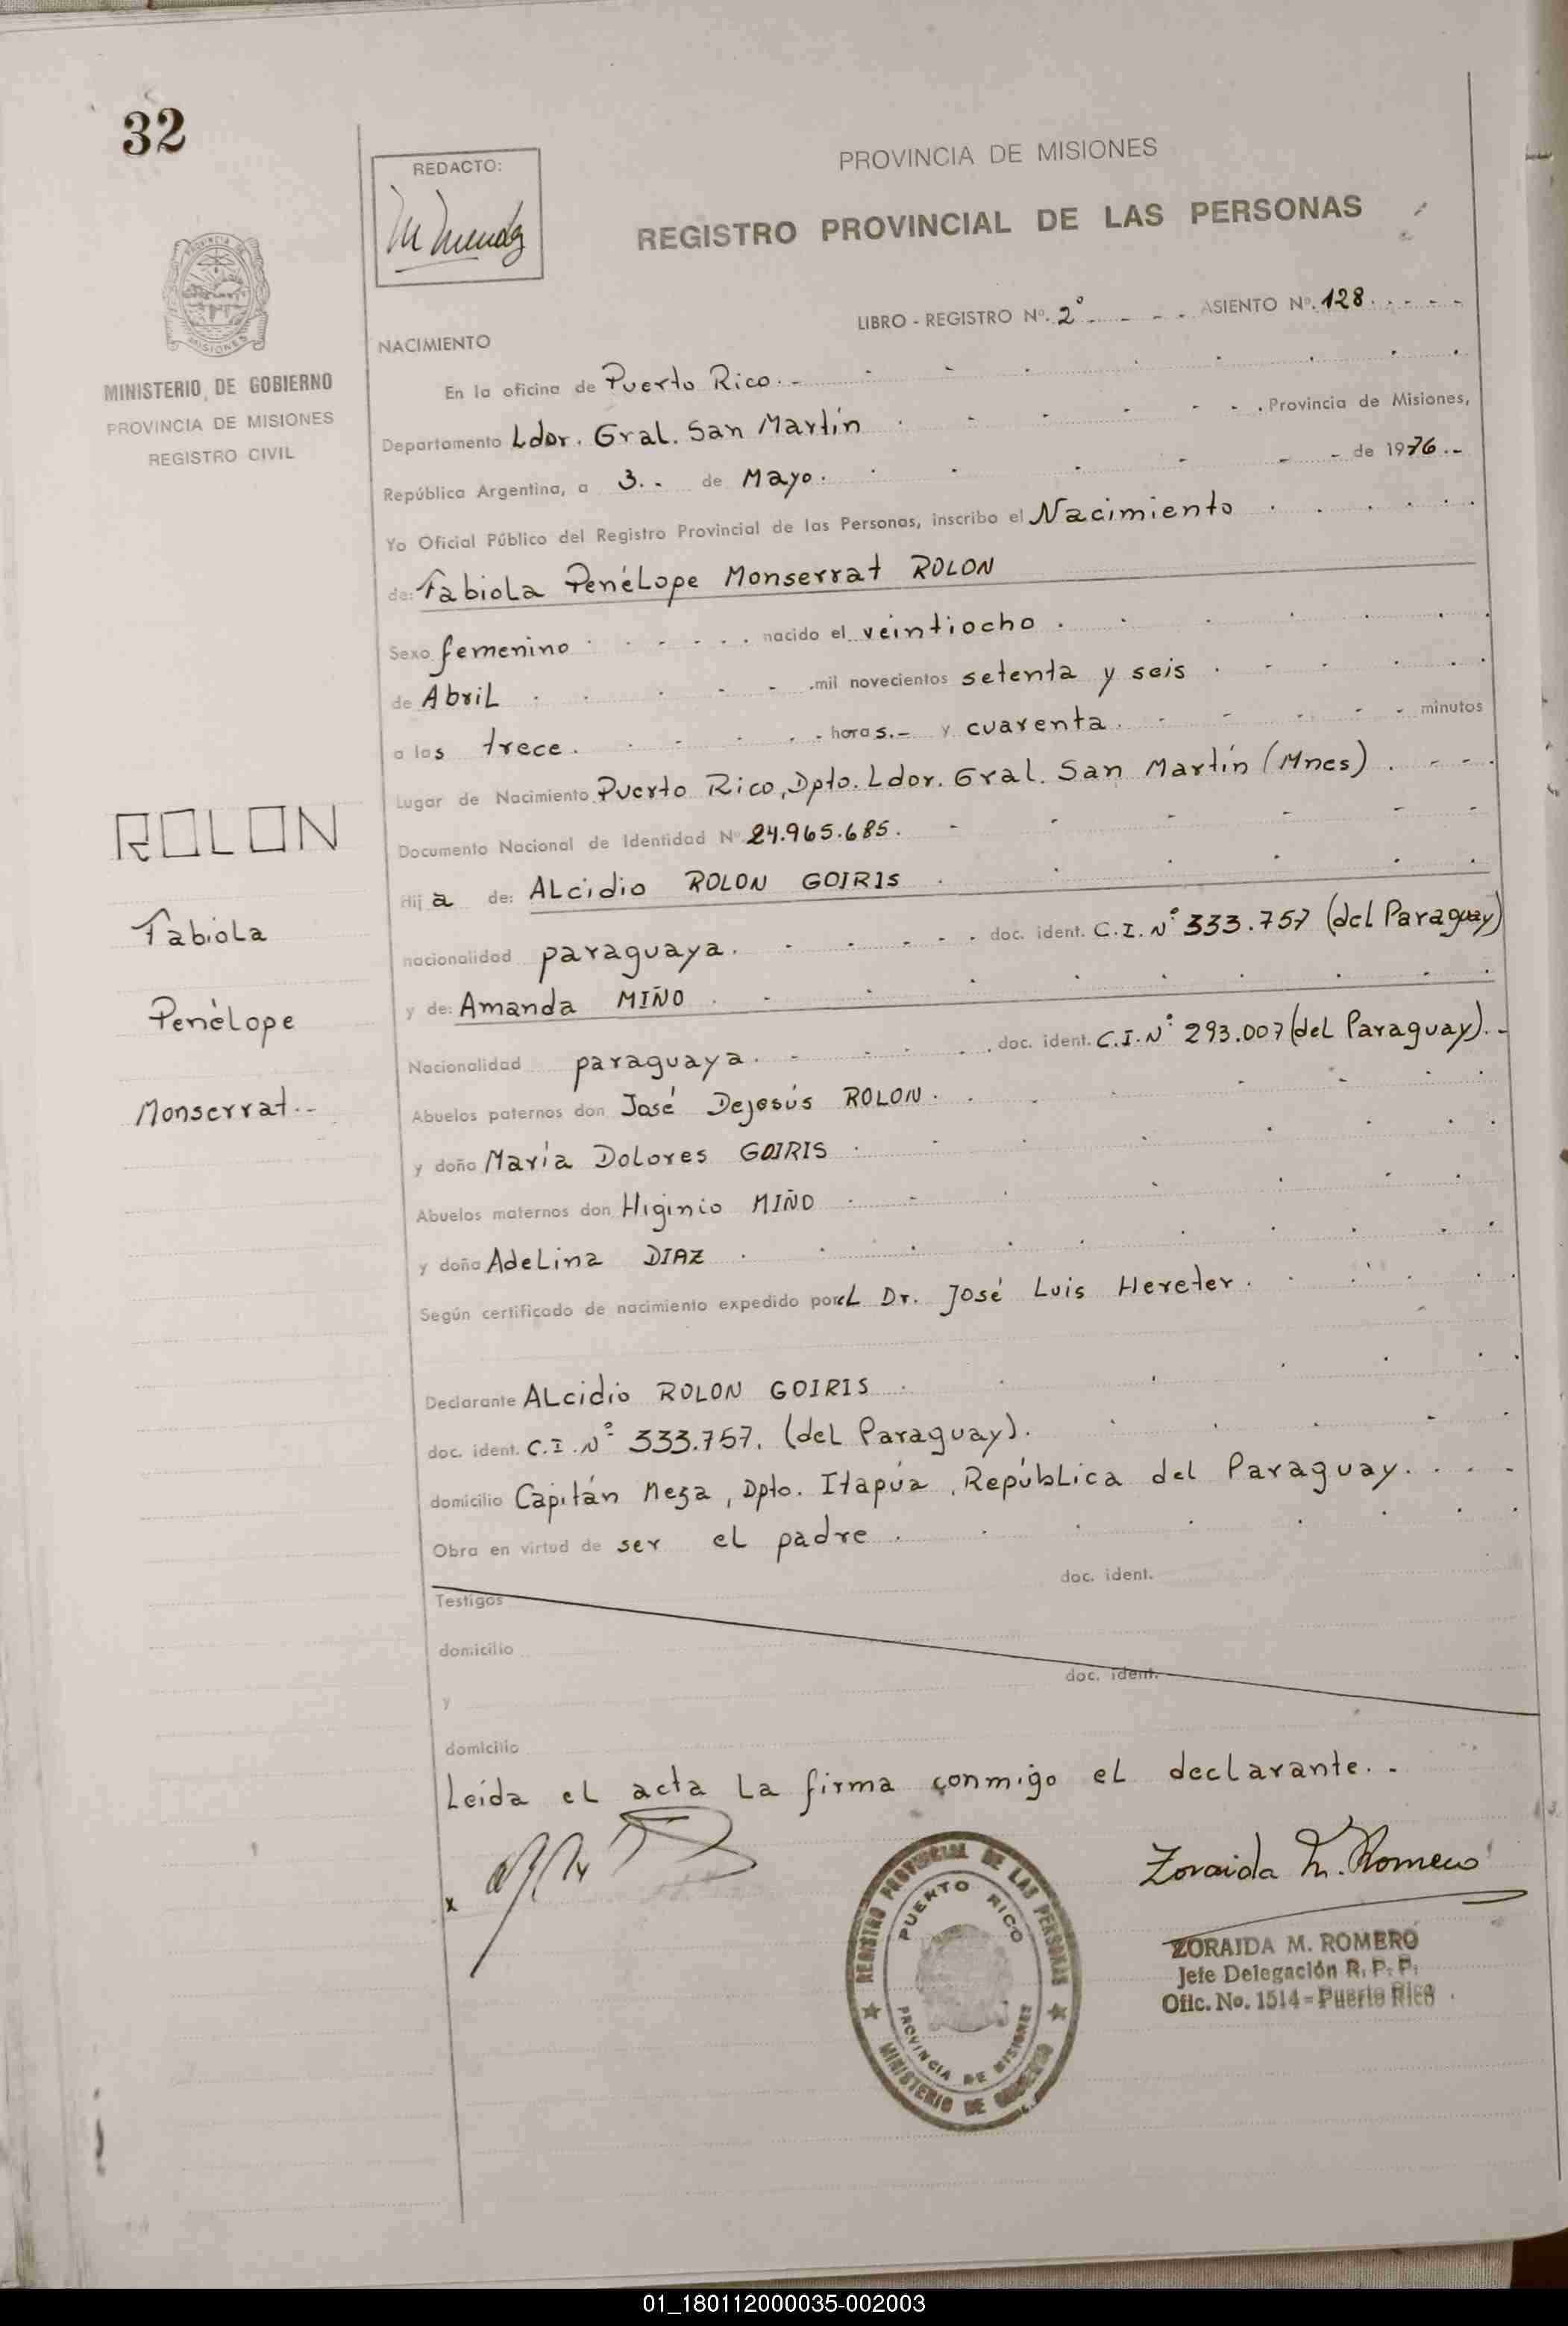 32
REDACTO:
PROVINCIA DE MISIONES
REGISTRO PROVINCIAL DE LAS PERSONAS
PROVINCIA DE
MISIONES
MINISTERIO DE GOBIERNO
PROVINCIA DE MISIONES
REGISTRO CIVIL
LIBRO - REGISTRO Nº. 2º - - - ASIENTO Nº. 128. - - - -
NACIMIENTO
En la oficina de Puerto Rico. -
Departamento Ldor. Gral. San Martín - - - - . Provincia de Misiones,
República Argentina, a 3. - de Mayo. - - - - de 1976. -
Yo Oficial Público del Registro Provincial de las Personas, inscribo el Nacimiento
de: Fabiola Penélope Monserrat ROLON
Sexo femenino - - - - nacido el veintiocho .
de Abril - - - - mil novecientos setenta y seis .
a las trece. - - - horas. - y cuarenta. - - - - minutos
Lugar de Nacimiento Puerto Rico, Dpto. Ldor. Gral. San Martín (Mnes) . - - -
Documento Nacional de Identidad Nº 24.965.685.
Hija de: ALcidio ROLON GOIRIS
nacionalidad paraguaya. - - - - doc. ident. C.I. Nº 333.757 (del Paraguay)
y de: Amanda MIÑO
Nacionalidad paraguaya. - - - - doc. ident. C.I. Nº 293.007 (del Paraguay). -
Abuelos paternos don José Dejesús ROLON.
y doña María Dolores GOIRIS
Abuelos maternos don Higinio MIÑO
y doña AdeLina DIAZ
Según certificado de nacimiento expedido por eL Dr. José Luis Hereter.
Declarante ALcidio ROLON GOIRIS
doc. ident. C.I. Nº 333.757. (del Paraguay).
domicilio Capitán Meza, Dpto. Itapúa, República del Paraguay. - - - -
Obra en virtud de ser el padre
doc. ident.
Testigos
domicilio
doc. ident.
y
domicilio
Leída el acta la firma conmigo el declarante. -
x
ROLON
Fabiola
Penélope
Monserrat. -
REGISTRO PROVINCIAL DE LAS PERSONAS
PUERTO RICO
PROVINCIA DE MISIONES
MINISTERIO DE GOBIERNO
Zoraida M. Romero
ZORAIDA M. ROMERO
Jefe Delegación R. P. P.
Ofic. No. 1514 = Puerto Rico
01_180112000035-002003